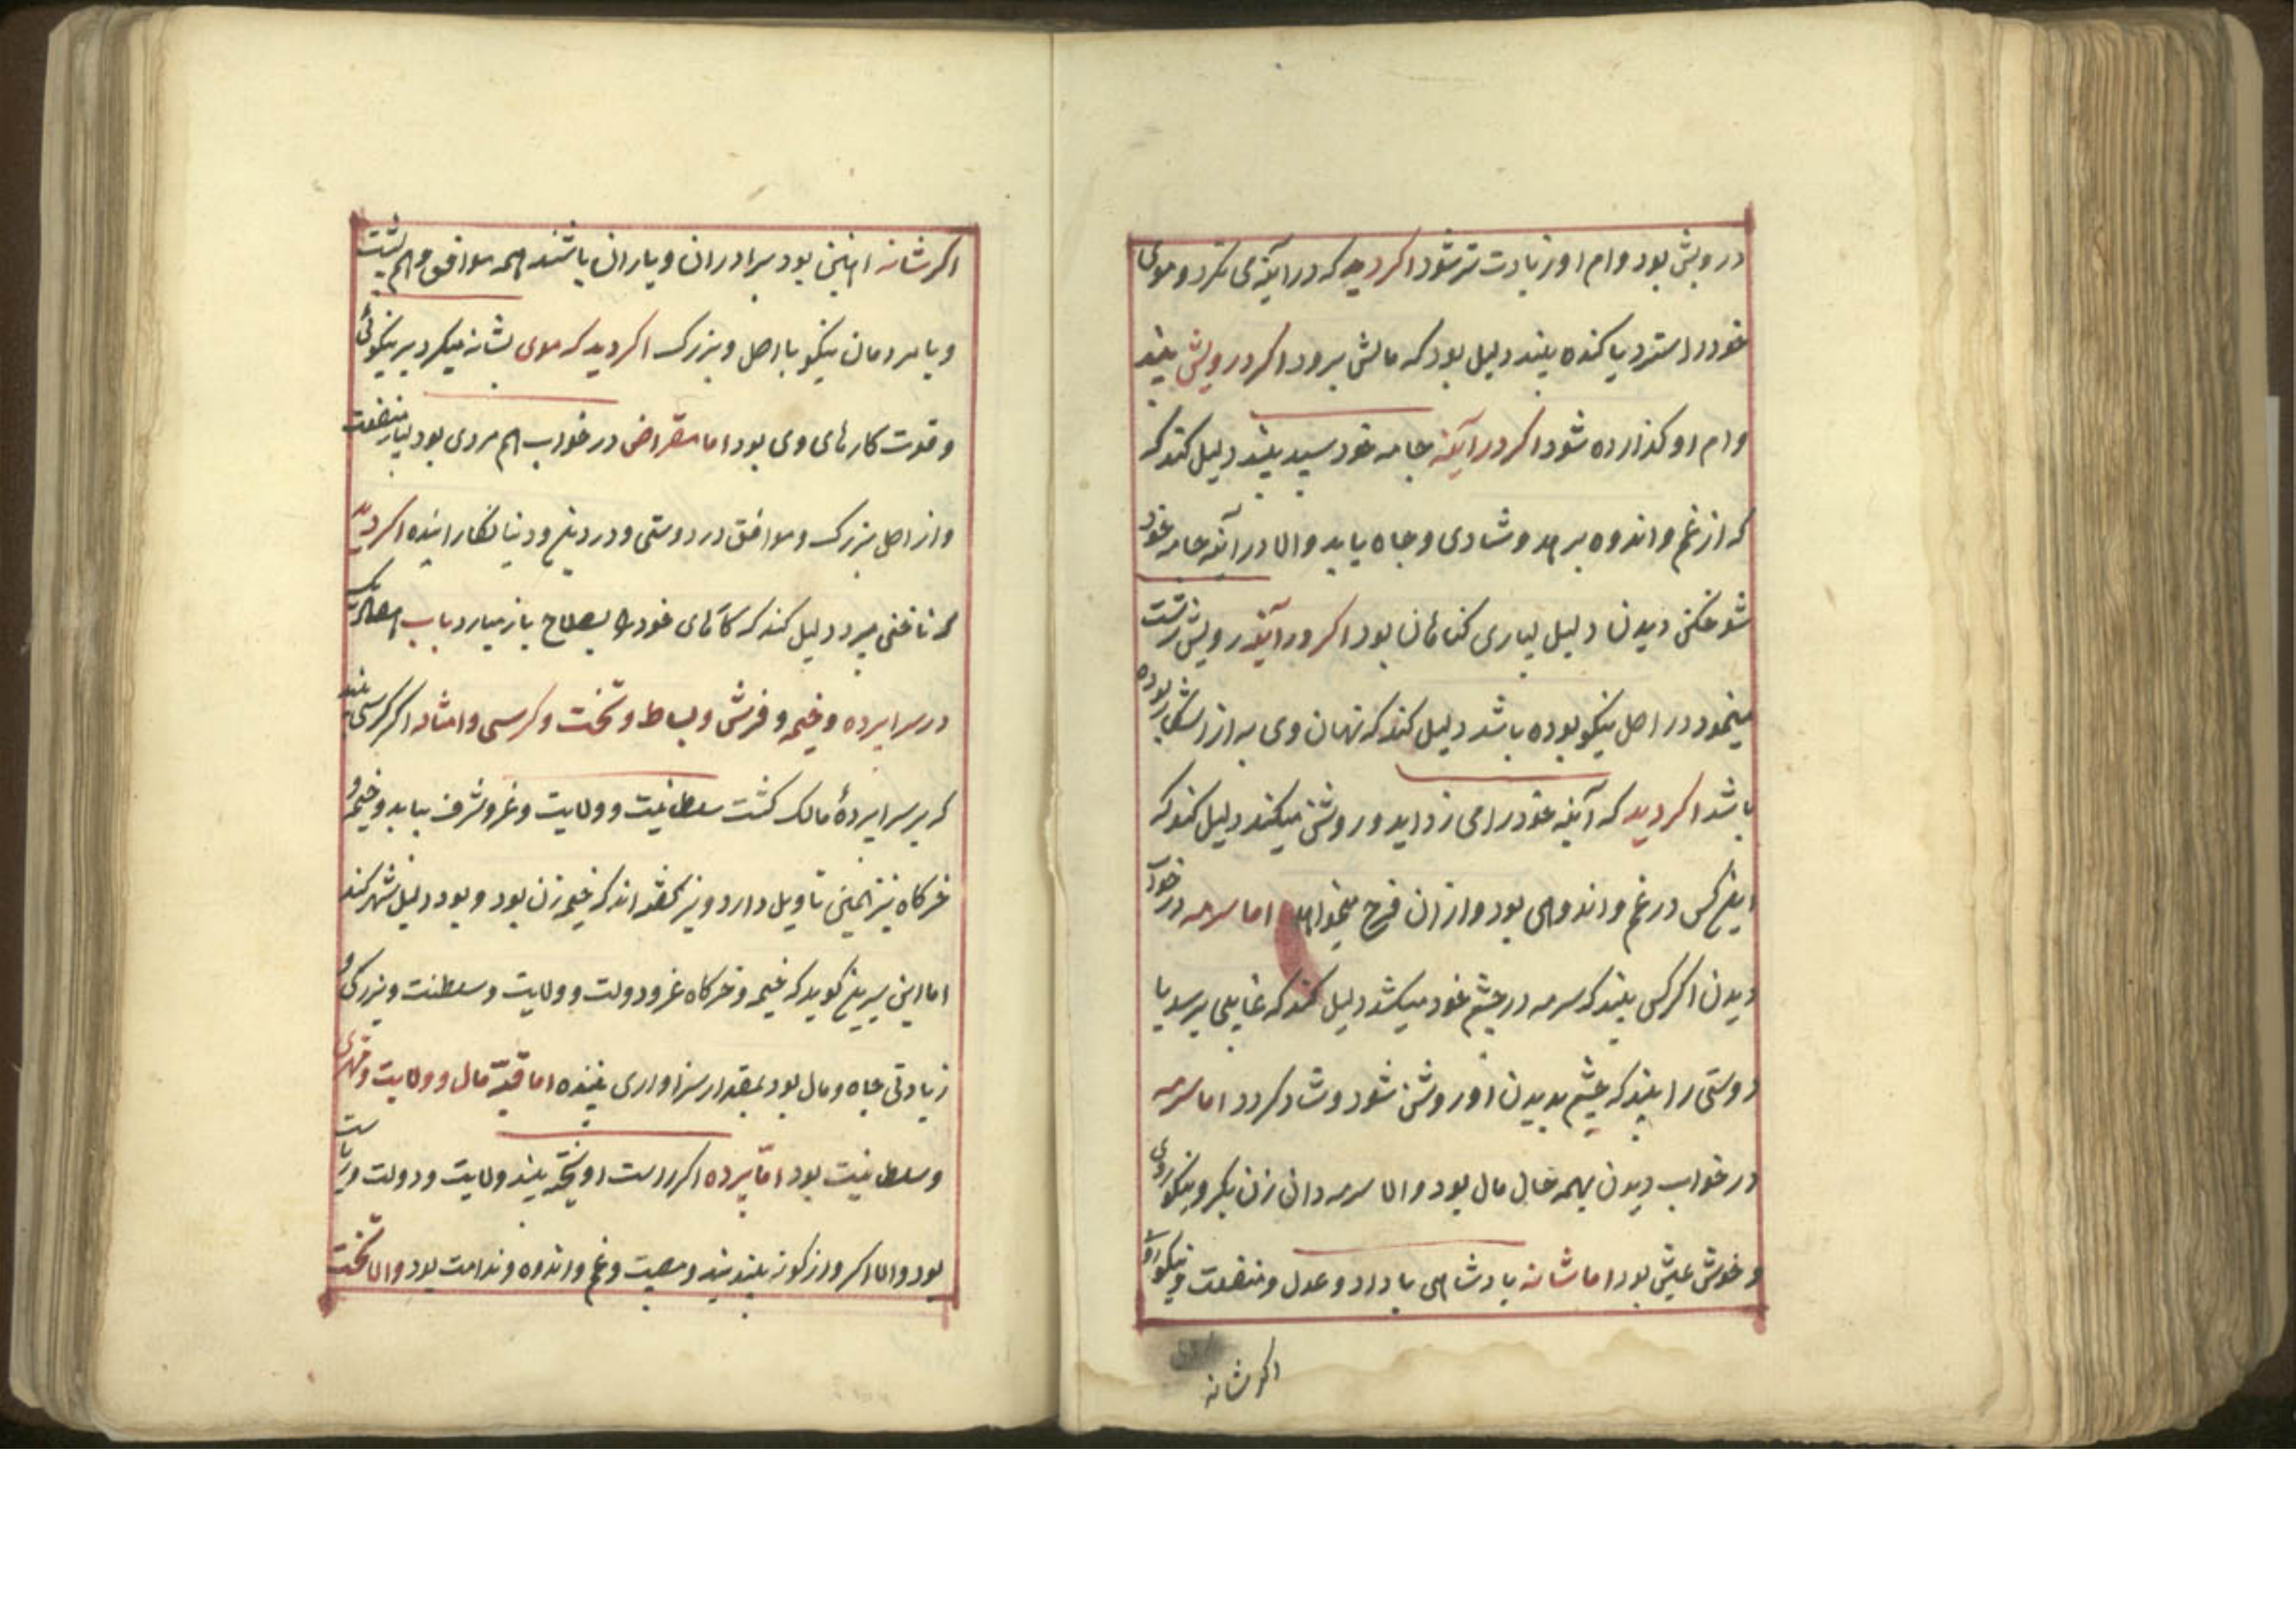 درویش بود و ام او زیادت تر شود اکر دید که در آینه می نکرد و موی
خود را سترد یا کنده بیند دلیل بود که مالش برود اکر درویش بیند
وام او کذارده شود اکر در آینه جامه خود سپید بیند دلیل کند که
که از غم و اندوه برهد و شادی و جاه یابد والا در آینه جامه خود
شوخکن دیدن دلیل بسیاری کناهان بود اکر در آینه رویش زشت
مینمود در اصل نیکو بوده باشد دلیل کند که نهان وی به از اشکارا بوده
باشد اکر دید که آینه خود را می زداید و روشن میکند دلیل کند که
اینکس در غم و اندوهی بود و از ان فرج میخواهد اما سرمه در خواب
دیدن اکر کسی بیند که سرمه در چشم خود میکشد دلیل کند که غایبی برسد یا
دوستی را بیند که چشم بدیدن او روشن شود و شاد کردد اما سرمه
در خواب دیدن بهمه حال مال بود والا سرمه دان زن بکر و نیکو روی
و خوش عیش بود اما شانه پادشاهی با داد و عدل و منفعت و نیکو
اکر شانه
اکر شانه اهنین بود برادران و یاران باشند همه موافق و هم پشت
و یا مردمان نیکو با اصل و بزرک اکر دید که موی بشانه میکرد بر نیکوئی
و قوت کارهای وی بود اما مقراض در خواب هم مردی بود بسیار منفعت
و از اصل بزرک و موافق در دوستی و در دین و دنیا بکار اینده اکر دید
که ناخنی میبرد دلیل کند که کارهای خود را بصلاح باز میارد باب
در سراپرده و خیمه و فرش و بساط و تخت و کرسی و امثاله اکر کسی بیند
که بر سراپردهٔ مالک کشت سلطانیت و ولایت و عز و شرف بیابد و خیمه و
خرکاه نیز همین تاویل دارد و نیز کفته اند که خیمه زن بود و بود دلیل شهر کند
اما ابن سیرین کوید که خیمه و خرکاه عز و دولت و ولایت و سلطنت و بزرکی و
زیادتی جاه و مال بود بمقدار سزاواری بیننده اما قبه مال و ولایت و مهتری
و سلطانیت بود اما پرده اکر راست اویخته بیند ولایت و دولت و ریاست
بود والا اکر واژکونه بلند بیند مصیبت و غم و اندوه و ندامت بود والا تخت